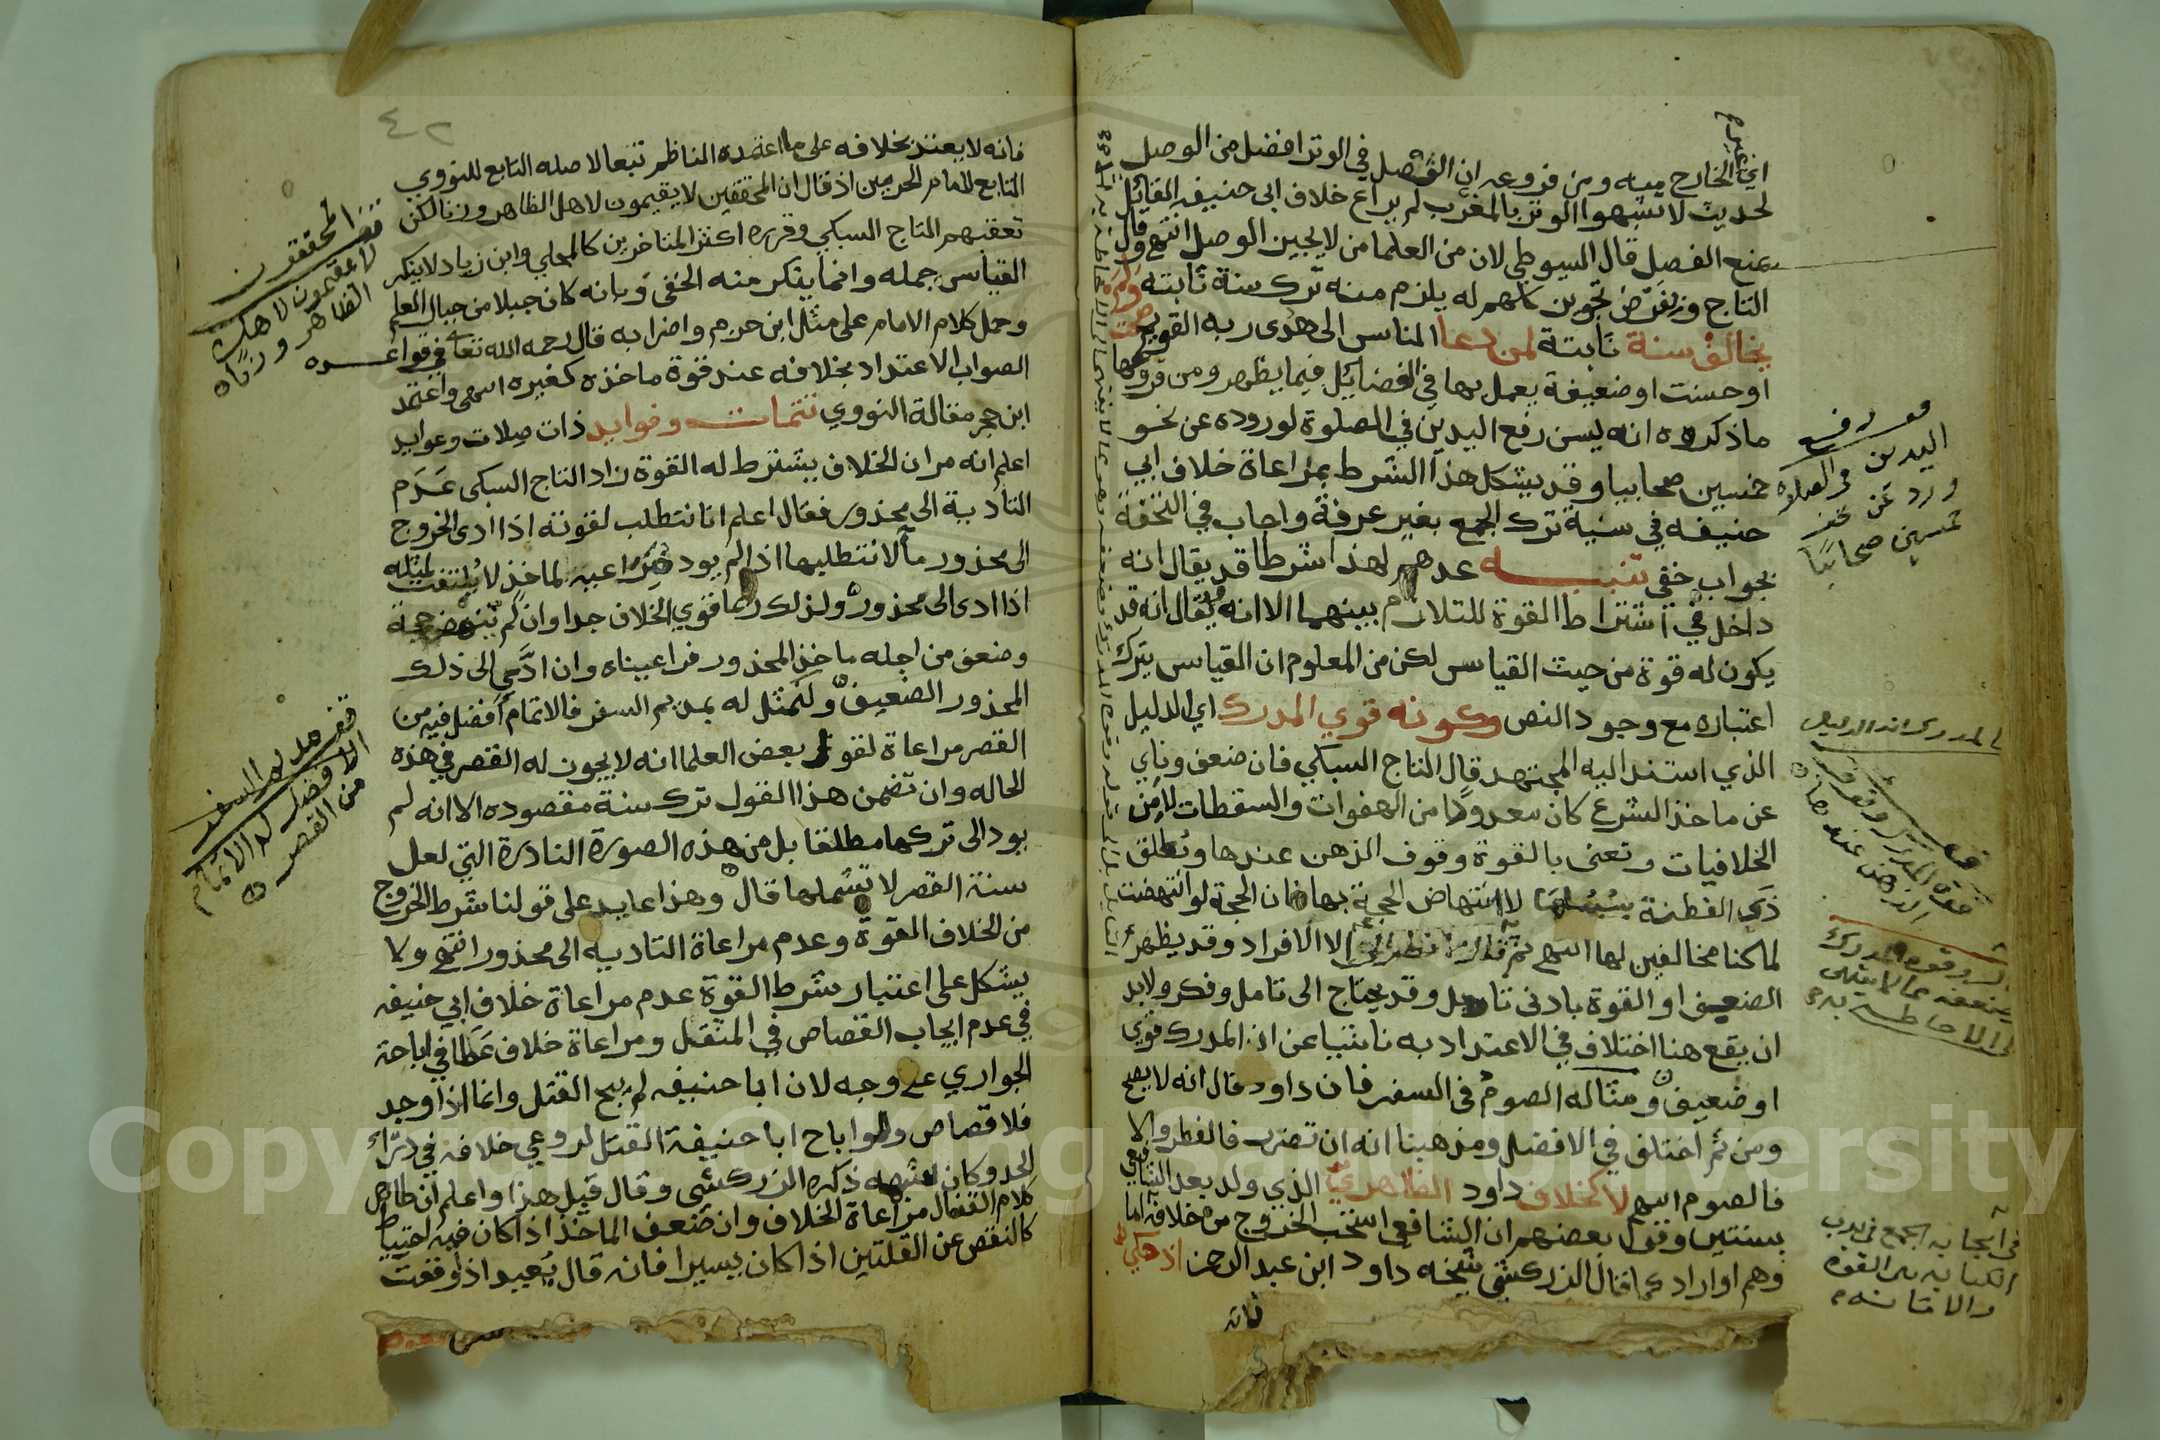 اي الخارج منه ومن فروعه ان الفصل في الوتر افضل من الوصل
لحديث لا تشبهوا الوتر بالمغرب لم يراع خلاف ابي حنيفه القائل
بمنع الفصل قال السيوطي لان من العلما من لا يجيز الوصل انتهى وقال
التاج وبفرض تجويز كلهم له يلزم منه ترك سنة ثابته ولم
يخالف سنة ثابتة لمن دعا الناس الى هدى ربه القويم صحت
او حسنت او ضعيفة يعمل بها في الفضائل فيما يظهر ومن فروعها
ما ذكروه انه يسن رفع اليدين في الصلوة لوروده عن نحو
خمسين صحابيا وقد يشكل هذا الشرط بمراعاة خلاف ابي
حنيفه في سنية ترك الجمع بغير عرفة واجاب في التحفة
بجواب خفي تنبيه عدهم لهذا شرطا قد يقال انه
داخل في اشتراط القوة للتلازم بينهما الا انه قد يقال انه قد
يكون له قوة من حيث القياس لكن من المعلوم ان القياس يترك
اعتباره مع وجود النص وكونه قوي المدرك اي الدليل
الذي استند اليه المجتهد قال التاج السبكي فان ضعف وناي
عن ماخذ الشرع كان معدودا من الهفوات والسقطات لا من
الخلافيات ونعنى بالقوة وقوف الذهن عندها وتعلق
ذي الفطنة بسببها لا انتهاض الحجة بها فان الحجة لو انتهضت
لما كنا مخالفين لها انتهى ثم الا الافراد وقد يظهر
الضعيف او القوة بادنى تامل وقد يحتاج الى تامل وفكر ولا بد
ان يقع هنا اختلاف في الاعتداد به ناشئا عن ان المدرك قوي
او ضعيف ومثاله الصوم في السفر فان داود قال انه لا يصح
ومن ثم اختلف في الافضل ومذهبنا انه ان تضرر فالفطر والا
فالصوم انتهى لا كخلاف داود الظاهري الذي ولد بعد الشافعي
بسنتين وقول بعضهم ان الشافعي استحب الخروج من خلافه اما
وهم او اراد كما قال الزركشي شيخه داود ابن عبد الرحمن
فانه
رفع
اليدين في الصلوة
ورد عن نحو
خمسين صحابيا
قوة المدرك وقوف
الذهن عندها
في ايجابه الجمع
فانه لا يعتد بخلافه على ما اعتمده الناظم تبعا لاصله التابع للنووي
التابع لامام الحرمين اذ قال ان المحققين لا يقيمون لاهل الظاهر وزنا لكن
تعقبهم التاج السبكي وقرره اكثر المتاخرين كالمحلي وابن زياد لا ينكر
القياس جمله وانما ينكر منه الخفي وبانه كان جبلا من جبال العلم
وحمل كلام الامام على مثل ابن حزم واضرابه قال رحمه الله تعالى في قواعده
الصواب الاعتداد بخلافه عند قوة ماخذه كغيره انتهى واعتمد
ابن حجر مقالة النووي تتمات وفوايد ذات صلات وعوايد
اعلم انه مر ان الخلاف يشترط له القوة زاد التاج السبكي عدم
التأدية الى محذور فقال اعلم انا نتطلب لقوته اذا ادى الخروج
الى محذور ما لا نتطلبها اذا لم يود فنراعيه لماخذ لا يلتفت لمثله
اذا ادى الى محذور ولذلك ربما قوي الخلاف جدا وان لم ينهض حجة
وضعف من اجله ماخذ المحذور فراعيناه وان ادى الى ذلك
المحذور الضعيف ولنمثل له بمديم السفر فالاتمام افضل فيه من
القصر مراعاة لقول بعض العلما انه لا يجوز له القصر في هذه
الحاله وان تضمن هذا القول ترك سنة مقصوده الا انه لم
يود الى تركها مطلقا بل من هذه الصورة النادرة التي لعل
سنة القصر لا تشملها قال وهذا عايد على قولنا شرط الخروج
من الخلاف القوة وعدم مراعاة التاديه الى محذور انتهى ولا
يشكل على اعتبار شرط القوة عدم مراعاة خلاف ابي حنيفه
في عدم ايجاب القصاص في المثقل ومراعاة خلاف عطا في اباحة
الجواري على وجه لان ابا حنيفه لم يبح القتل وانما اذا وجد
فلا قصاص ولو اباح ابا حنيفة القتل لروعي خلافه في درء
الحد وكان شبهه ذكره الزركشي وقال قبل هذا واعلم ان ظاهر
كلام القفال مراعاة الخلاف وان ضعف الماخذ اذا كان فيه احتياط
كالنقص عن القلتين اذا كان يسيرا فانه قال يعيد اذ لو وقعت
قف المحققون
لا يقيمون لاهل
الظاهر وزنا
قف مديم السفر
الافضل له الاتمام
من القصر
٤٢
Copyright © King Saud University